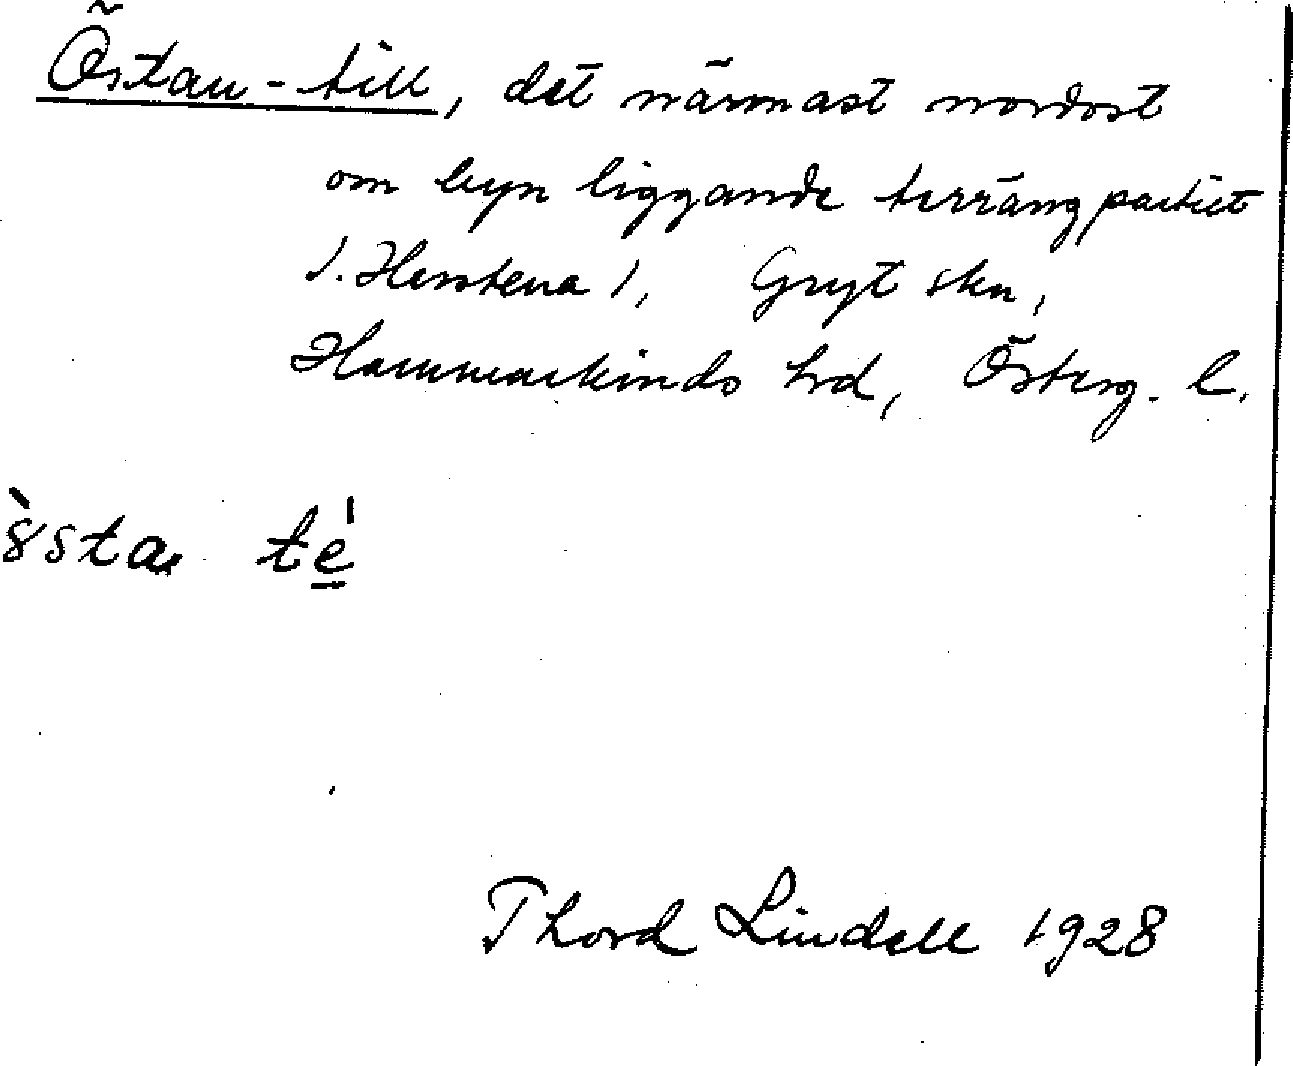 Östan-till, det närmast nordost
om byn liggande terrängpartiet
/. Harstena /, Gryt skn,
Hammarkinds hrd, Österg. l.
östan te
Thord Lindell 1928